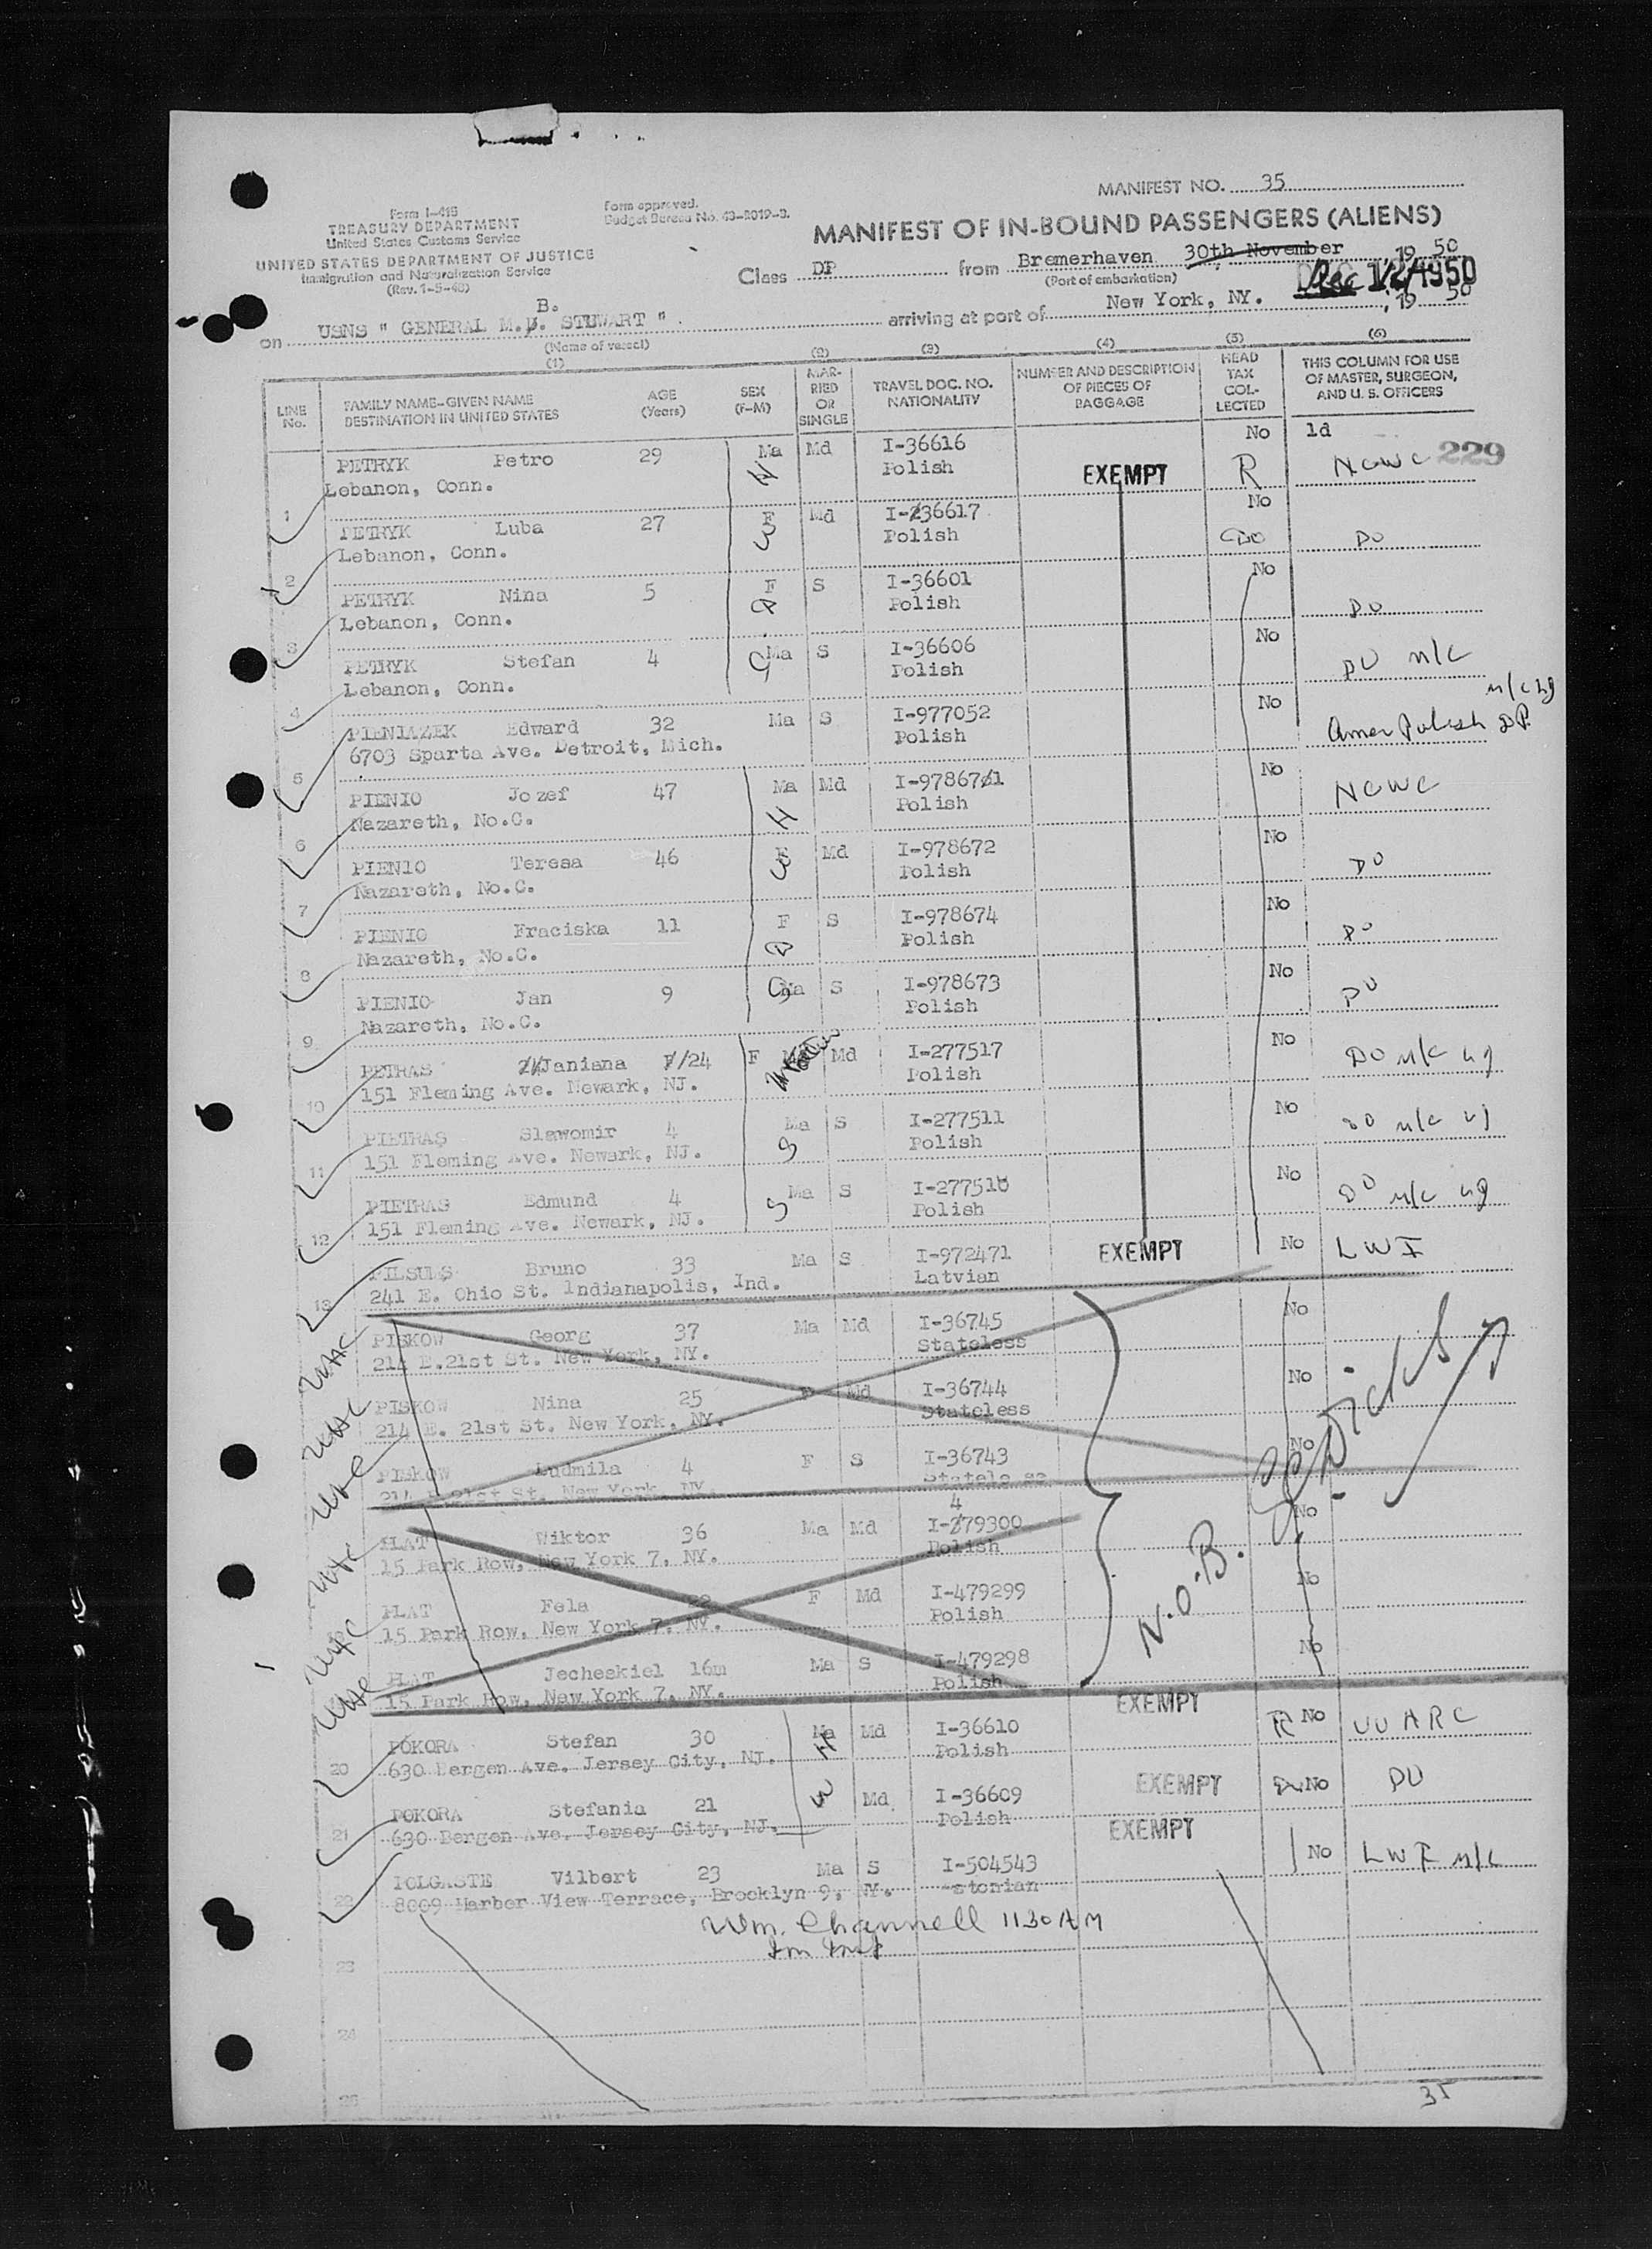 MANIFEST NO. 35
Form I-415
TREASURY DEPARTMENT
United States Customs Service
UNITED STATES DEPARTMENT OF JUSTICE
Immigration and Naturalization Service
(Rev. 1-5-48)
Form approved.
Budget Bureau No. 43-R019-3.
MANIFEST OF IN-BOUND PASSENGERS (ALIENS)
Class DP from Bremerhaven 30th November, 19 50
(Port of embarkation)
Dec 12 1950
on USNS " GENERAL M.B. STEWART " arriving at port of New York, NY., 19 50
(Name of vessel)
(1) (2) (3) (4) (5) (6)
LINE No. FAMILY NAME-GIVEN NAME DESTINATION IN UNITED STATES AGE (Years) SEX (F-M) MARRIED OR SINGLE TRAVEL DOC. NO. NATIONALITY NUMBER AND DESCRIPTION OF PIECES OF BAGGAGE HEAD TAX COLLECTED THIS COLUMN FOR USE OF MASTER, SURGEON, AND U. S. OFFICERS
1d
229
1 PETRYK Petro 29 Ma H Md I-36616 EXEMPT No R NCWC
Lebanon, Conn. Polish
2 PETRYK Luba 27 F W Md I-36617 No DO DO
Lebanon, Conn. Polish
3 PETRYK Nina 5 F D S I-36601 No DO
Lebanon, Conn. Polish
4 PETRYK Stefan 4 Ma S I-36606 No DO M/C
Lebanon, Conn. Polish
5 PIENIAZEK Edward 32 Ma S I-977052 No Amer Polish DP. M/C
6703 Sparta Ave. Detroit, Mich. Polish
6 PIENIO Jozef 47 Ma H Md I-978671 No NCWC
Nazareth, No.C. Polish
7 PIENIO Teresa 46 F W Md I-978672 No DO
Nazareth, No.C. Polish
8 PIENIO Fraciska 11 F D S I-978674 No DO
Nazareth, No.C. Polish
9 PIENIO Jan 9 Ma S S I-978673 No DO
Nazareth, No.C. Polish
10 PETRAS Janiana 24 F Md I-277517 No DO M/C
151 Fleming Ave. Newark, NJ. Polish
11 PIETRAS Slawomir 4 Ma S S I-277511 No DO M/C
151 Fleming Ave. Newark, NJ. Polish
12 PIETRAS Edmund 4 Ma S S I-277510 No DO M/C
151 Fleming Ave. Newark, NJ. Polish
13 PILSULS Bruno 33 Ma S I-972471 EXEMPT No LWF
241 E. Ohio St. Indianapolis, Ind. Latvian
PISKOW Georg 37 Ma Md I-36745 No
214 E.21st St. New York, NY. Stateless
PISKOW Nina 25 F Md I-36744 No
214 E. 21st St. New York, NY. Stateless
PISKOW Ludmila 4 F S I-36743 No
214 E.21st St. New York, NY. Stateless
PLAT Wiktor 36 Ma Md I-479300 No
15 Park Row, New York 7, NY. Polish
N.O.B.
PLAT Fela 28 F Md I-479299 No
15 Park Row, New York 7, NY. Polish
PLAT Jecheskiel 16m Ma S I-479298 No
15 Park Row, New York 7, NY. Polish
20 POKORA Stefan 30 Ma H Md I-36610 EXEMPT R No UUARC
630 Bergen Ave. Jersey City, NJ. Polish
21 POKORA Stefania 21 W Md I-36609 EXEMPT No DO
630 Bergen Ave. Jersey City, NJ. Polish
22 POLGASTE Vilbert 23 Ma S I-504543 EXEMPT No LWF M/C
8009 Harbor View Terrace, Brooklyn 9, NY. Estonian
Wm. Channell 1130 AM
23
24
25
35